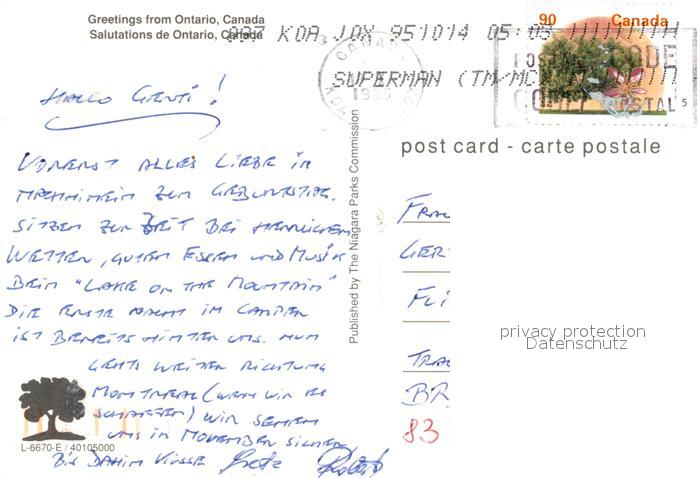 Greetings from Ontario, Canada
Salutations de Ontario, Canada
097 K0A JOX 951014 05:03
SUPERMAN (TM/MC
CANADA
1995
90 Canada
POSTAL CODE
CODE POSTAL
5
post card - carte postale
Published by The Niagara Parks Commission
HALLO GERTI!
VORERST ALLES LIEBE IM
NACHHINEIN ZUM GEBURTSTAG.
SITZEN ZUR ZEIT BEI HERRLICHEM
WETTER, GUTEM ESSEN UND MUSIK
BEIM "LAKE ON THE MOUNTAIN"
DIE ERSTE NACHT IM CAMPER
IST BEREITS HINTER UNS. NUN
GEHTS WEITER RICHTUNG
MONTREAL (WENN WIR ES
SCHAFFEN) WIR SEHEN
UNS IN NOVEMBER SICHER
BIS DAHIN KÜSSE
FRAU
GER
FLI
TRA
BR
83
L-6670-E / 40105000
privacy protection
Datenschutz